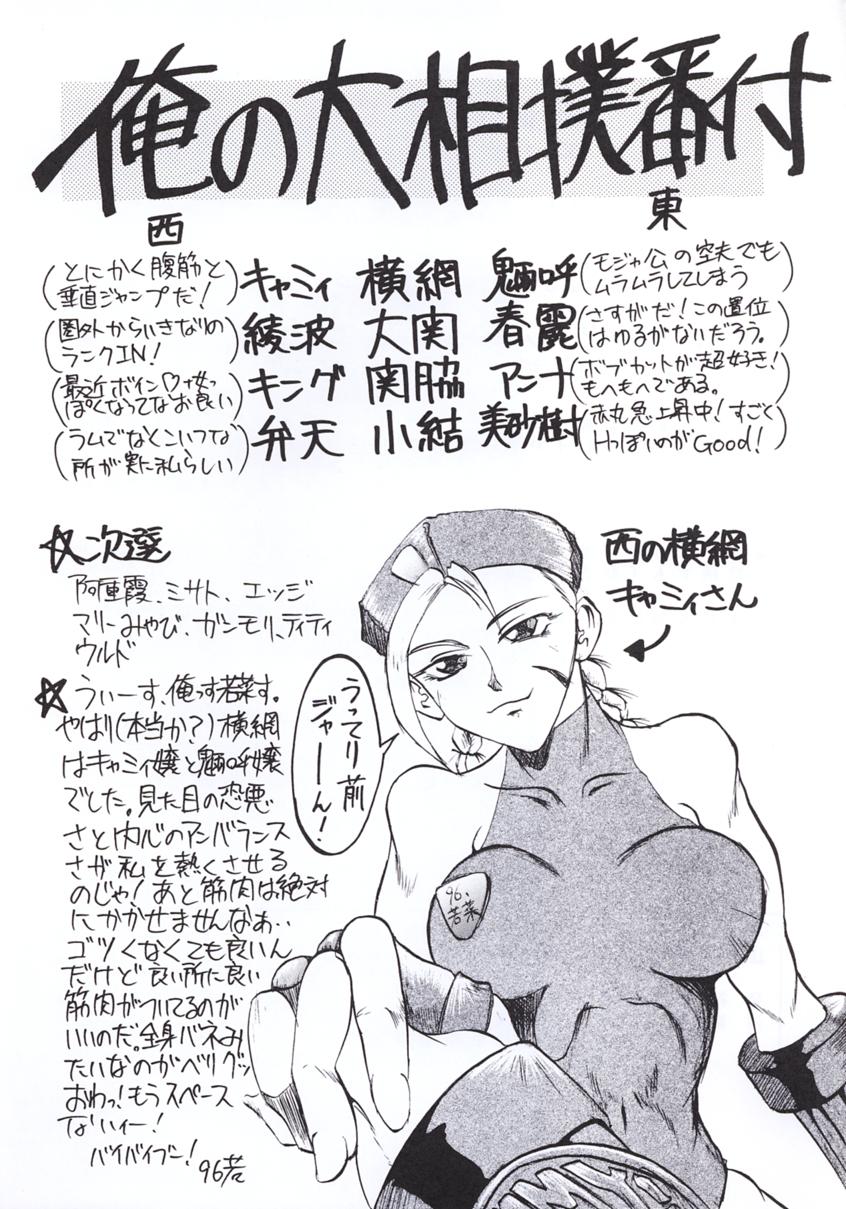 俺の大相撲番付
西
東
(とにかく腹筋と
垂直ジャンプだ!)
キャミィ 横綱 魎呼
(モジャ公の空夫でも
ムラムラしてしまう)
(圏外からいきなり
ランクIN!)
綾波 大関 春麗
(さすがだ!この置位
はゆるがないだろう。)
(最近ボイン♡女っ
ぽくなってなお良い)
キング 関脇 アンナ
(ボブカットが超好き!
もへもへである。)
(ラムでなくこいつな
所が実に私らしい)
弁天 小結 美砂樹
(赤丸急上昇中!すごく
HっぽいのがGood!)
☆次選
阿重霞、ミサト、エッジ
マリーみやび、ガンモリ、ティティ
ウルド
西の横綱
キャミィさん
☆うぃーす、俺っす若菜す。
やはり(本当か?)横綱
はキャミィ嬢と魎呼嬢
でした。見た目の恐悪
さと内心のアンバランス
さが私を熱くさせる
のじゃ!あと筋肉は絶対
にかかせませんなぁ‥
ゴツくなくても良いん
だけど良い所に良い
筋肉がついてるのが
いいのだ。全身バネみ
たいなのがベリグッ
おわっ!もうスペース
ないィー!
バイバイブー!
96若
うってり前
ジャーーん!
96、
若菜